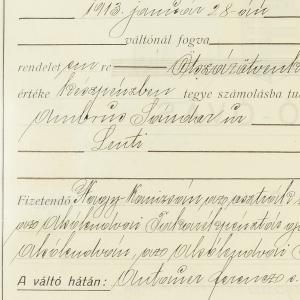 1913. január 28-án
váltónál fogva
rendelet en re Ötszázötvenk
értéke készpénzben tegye számolásba tu
Ambrus Sándor úr
Lenti
Fizetendő Nagy-Kanizsán, az osztrák
az Alsólendvai Takarékpénztár
Alsólendván, az Alsólendvai
A váltó hátán: Antauer Ferencz s